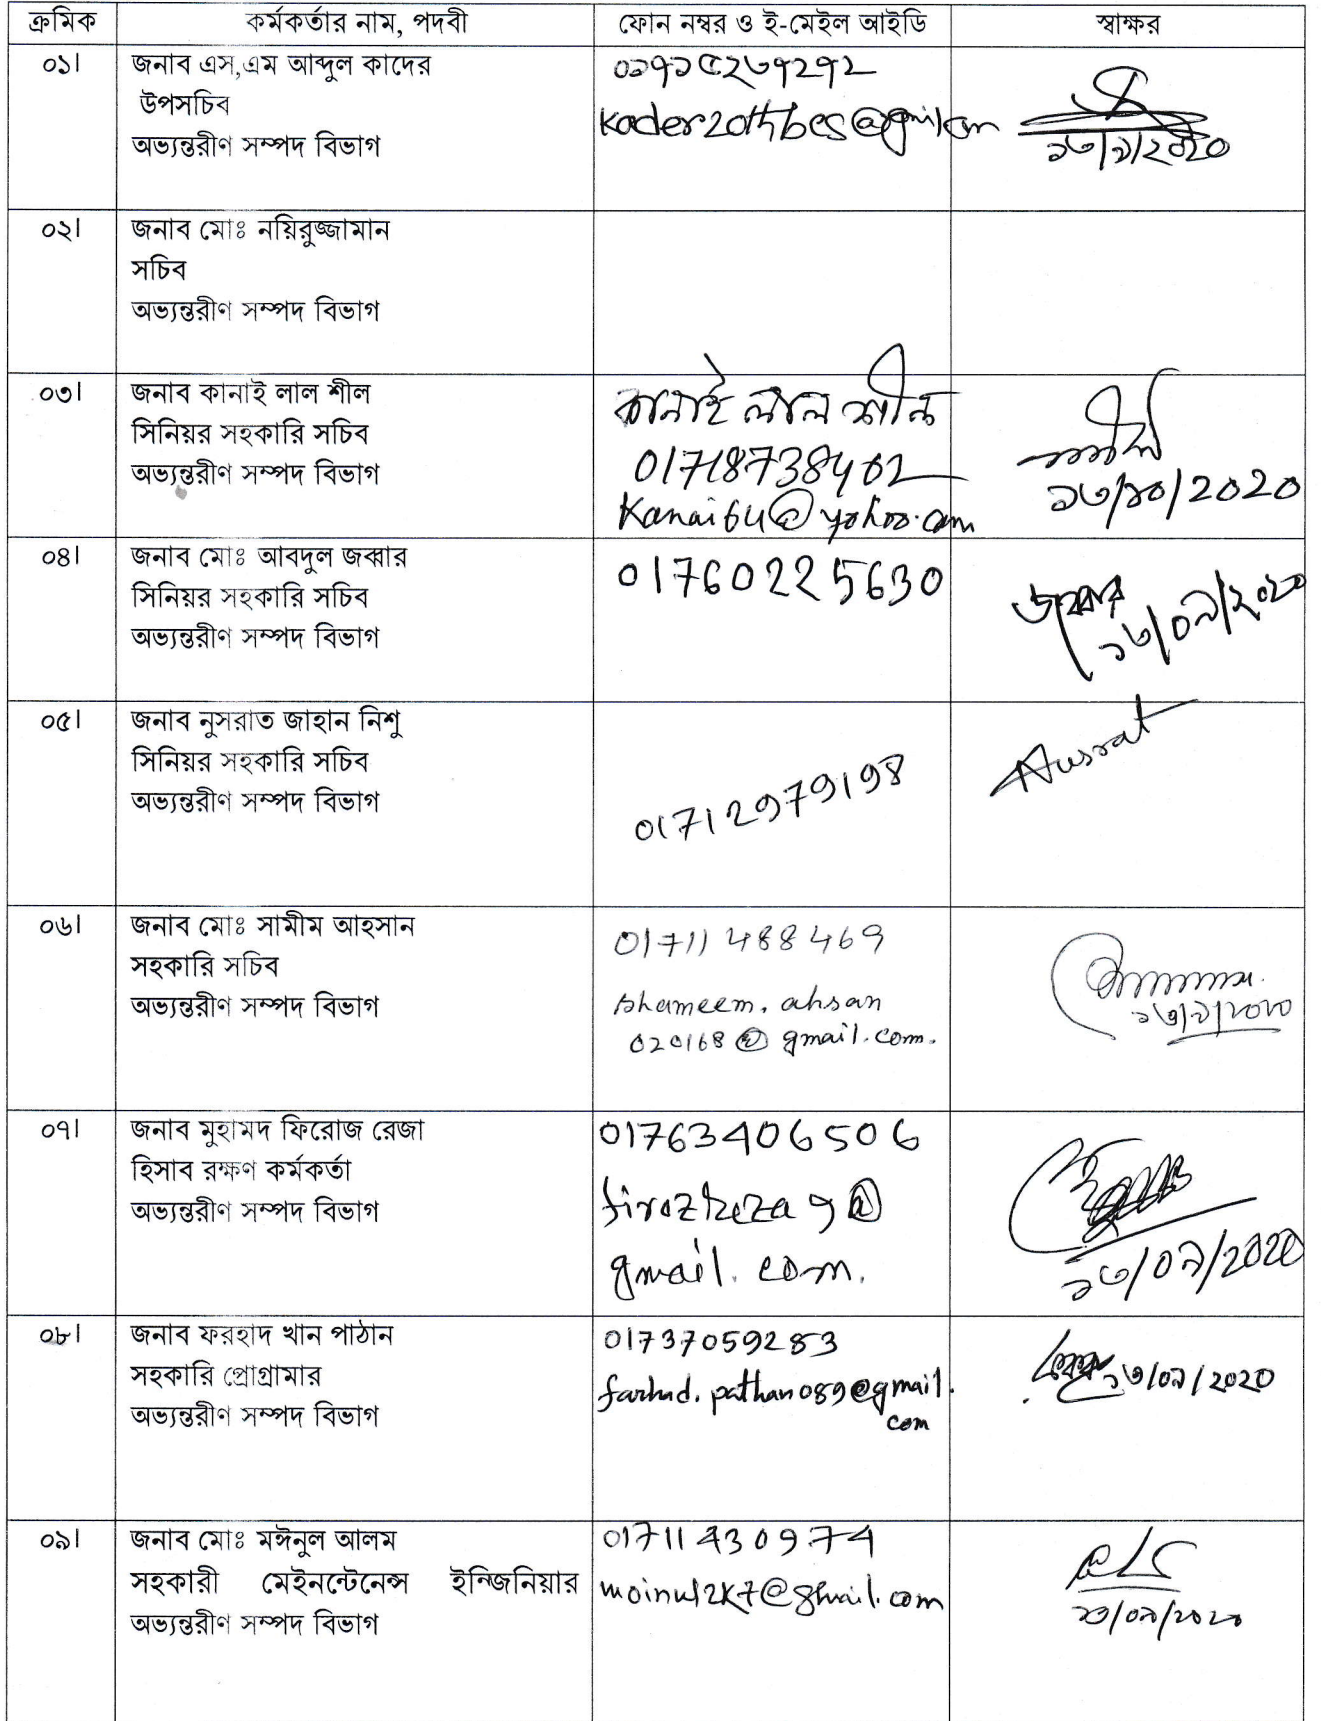 ক্রমিক কর্মকর্তার নাম, পদবী ফোন নম্বর ও ই-মেইল আইডি স্বাক্ষর
০১। জনাব এস,এম আব্দুল কাদের
উপসচিব
অভ্যন্তরীণ সম্পদ বিভাগ
০১৭১৫২৬৭২৭২
kader20thbcs@gmail.com
১৩/৯/২০২০
০২। জনাব মোঃ নয়িরুজ্জামান
সচিব
অভ্যন্তরীণ সম্পদ বিভাগ
০৩। জনাব কানাই লাল শীল
সিনিয়র সহকারি সচিব
অভ্যন্তরীণ সম্পদ বিভাগ
কানাই লাল শীল
01718738402
Kanai64@yahoo.com
১৩/১০/2020
০৪। জনাব মোঃ আবদুল জব্বার
সিনিয়র সহকারি সচিব
অভ্যন্তরীণ সম্পদ বিভাগ
01760225630
জব্বার
১৩/০৯/২০২০
০৫। জনাব নুসরাত জাহান নিশু
সিনিয়র সহকারি সচিব
অভ্যন্তরীণ সম্পদ বিভাগ
01712979198
Nusrat
০৬। জনাব মোঃ সামীম আহসান
সহকারি সচিব
অভ্যন্তরীণ সম্পদ বিভাগ
01711488469
shameem.ahsan
020168@gmail.com.
১৩/৯/২০২০
০৭। জনাব মুহামদ ফিরোজ রেজা
হিসাব রক্ষণ কর্মকর্তা
অভ্যন্তরীণ সম্পদ বিভাগ
01763406506
firozreza9@
gmail.com.
১৩/০৯/2020
০৮। জনাব ফরহাদ খান পাঠান
সহকারি প্রোগ্রামার
অভ্যন্তরীণ সম্পদ বিভাগ
01737059283
farhad.pathan089@gmail.
com
১৩/০৯/2020
০৯। জনাব মোঃ মঈনুল আলম
সহকারী মেইনন্টেনেন্স ইন্জিনিয়ার
অভ্যন্তরীণ সম্পদ বিভাগ
01711430974
moinul2k7@gmail.com
১৩/০৯/২০২০